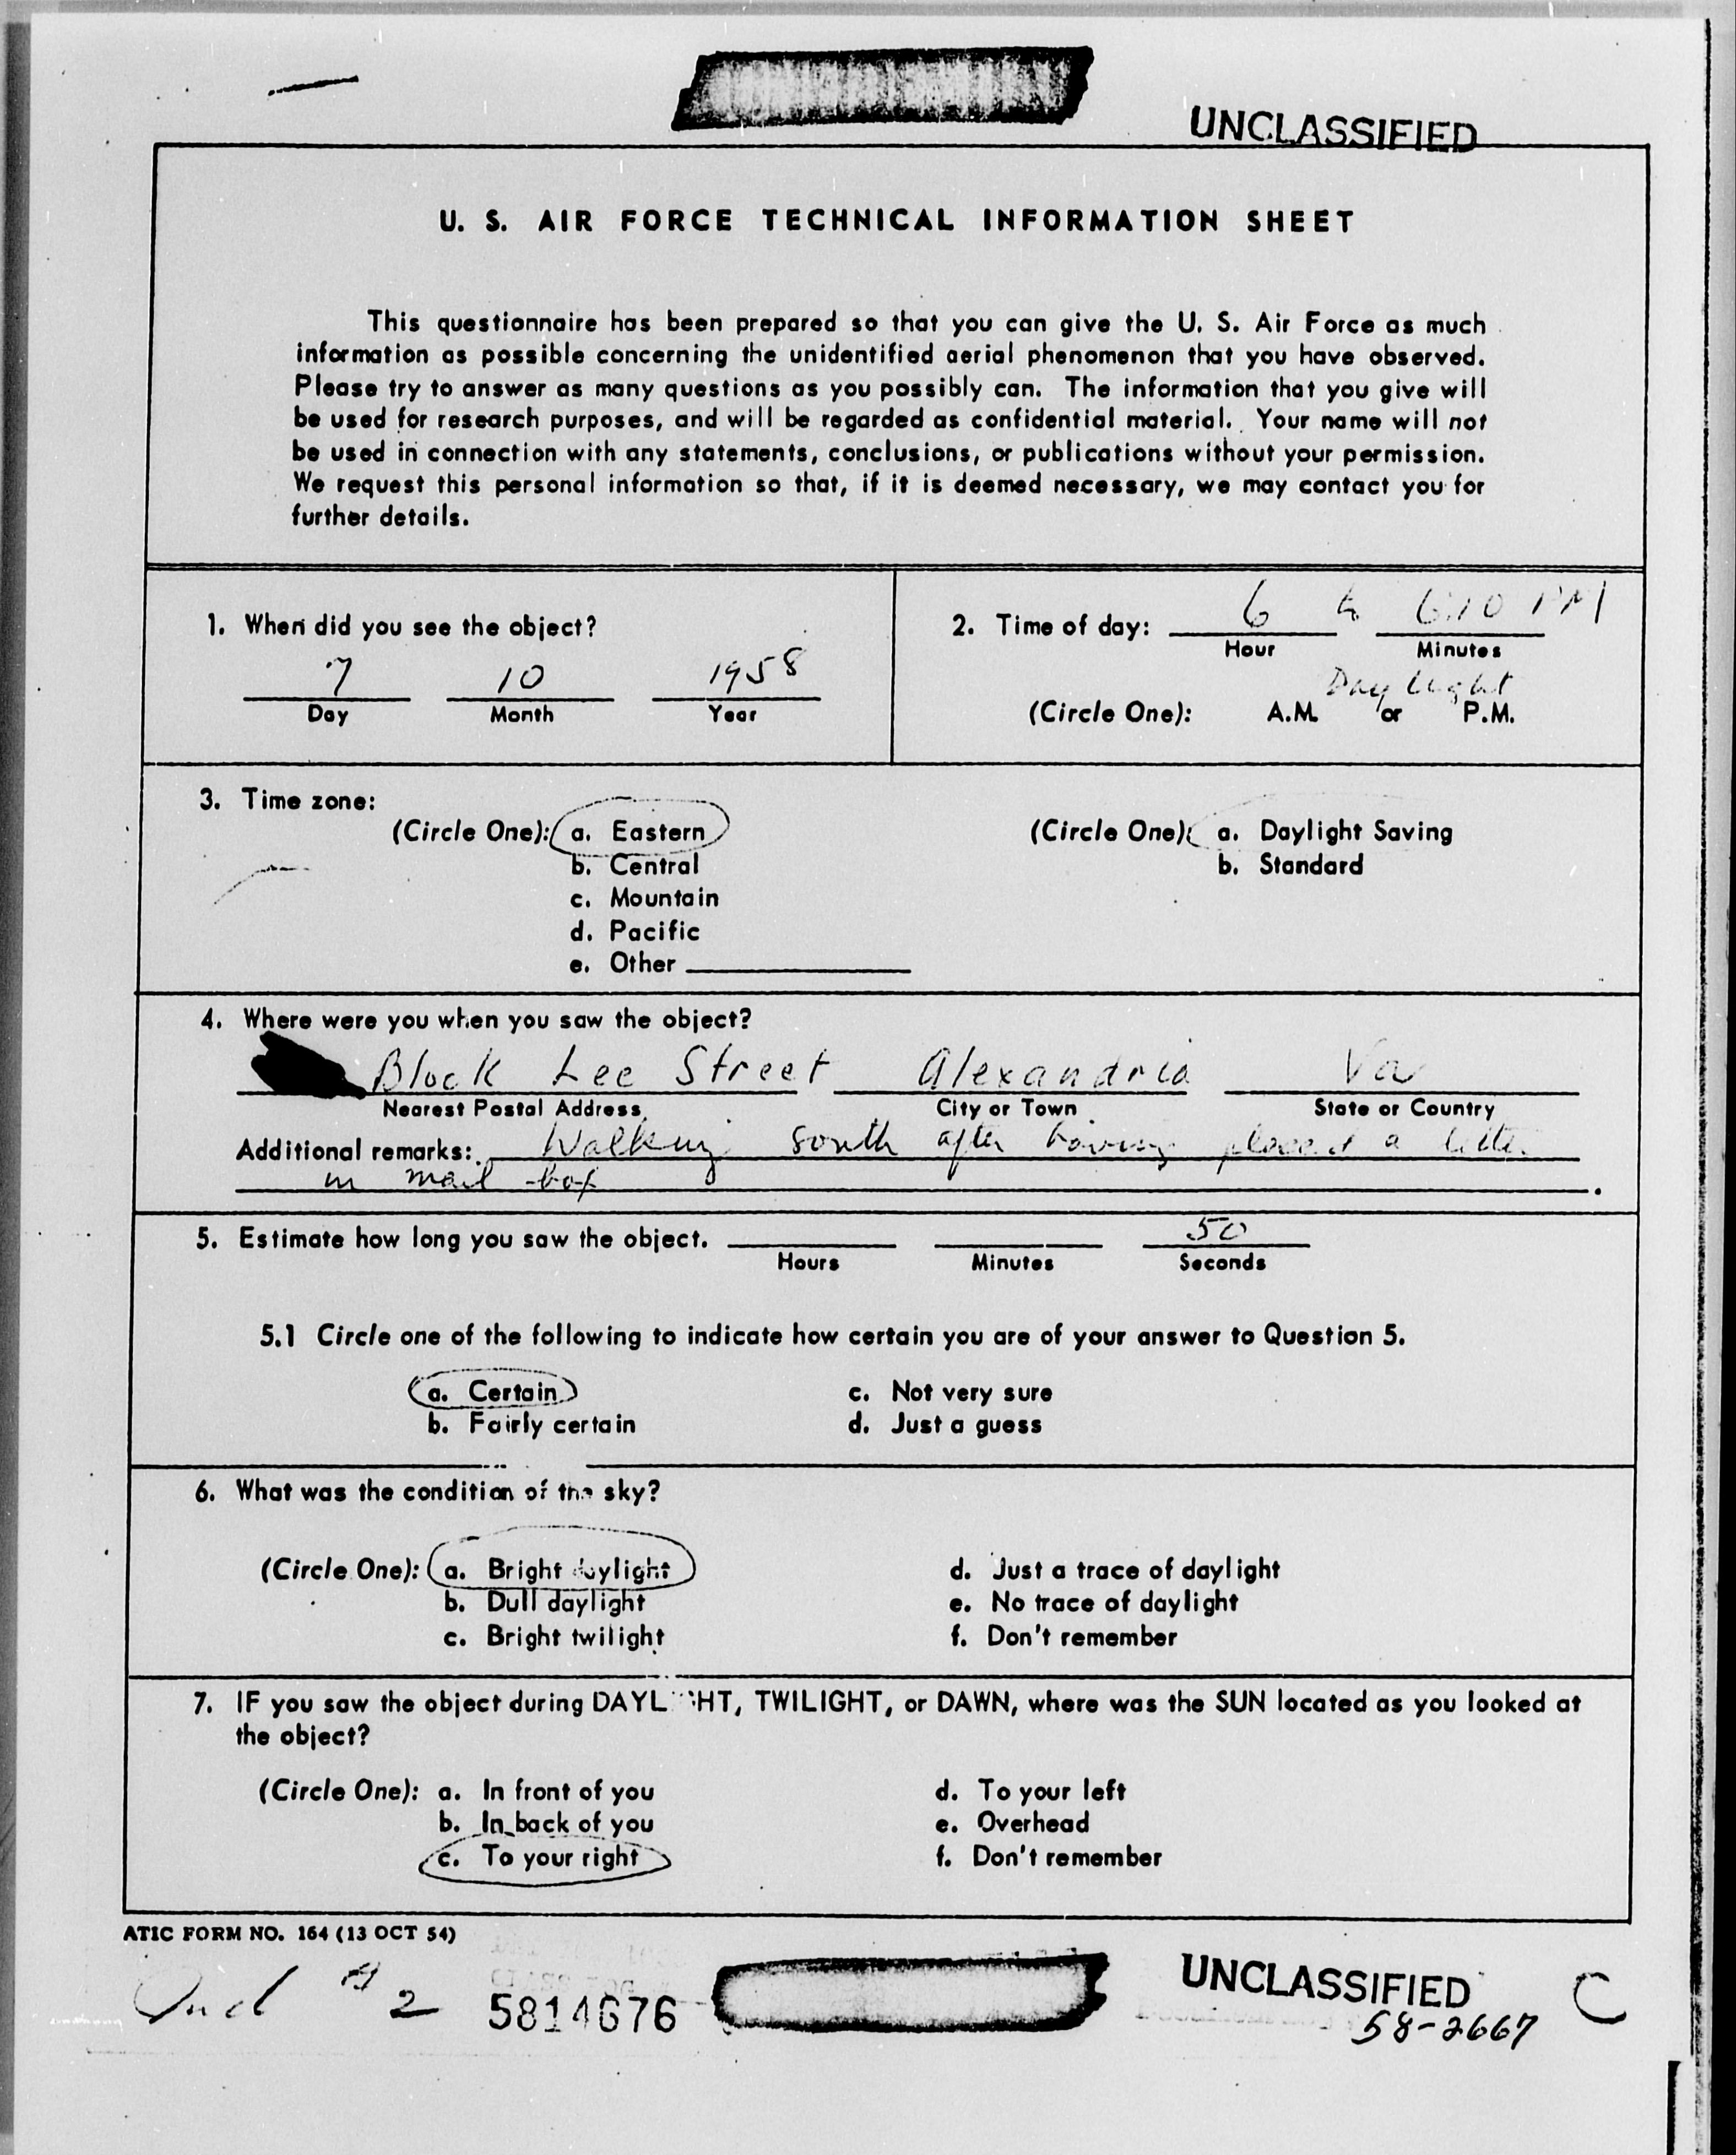 UNCLASSIFIED
U. S. AIR FORCE TECHNICAL INFORMATION SHEET
This questionnaire has been prepared so that you can give the U. S. Air Force as much
information as possible concerning the unidentified aerial phenomenon that you have observed.
Please try to answer as many questions as you possibly can. The information that you give will
be used for research purposes, and will be regarded as confidential material. Your name will not
be used in connection with any statements, conclusions, or publications without your permission.
We request this personal information so that, if it is deemed necessary, we may contact you for
further details.
1. When did you see the object?
7 10 1958
Day Month Year
2. Time of day: 6 to 6:10 PM
Hour Minutes
Daylight
(Circle One): A.M. or P.M.
3. Time zone:
(Circle One): a. Eastern
b. Central
c. Mountain
d. Pacific
e. Other
(Circle One): a. Daylight Saving
b. Standard
4. Where were you when you saw the object?
Block Lee Street Alexandria Va
Nearest Postal Address City or Town State or Country
Additional remarks: Walking south after having placed a letter
in mail box
5. Estimate how long you saw the object. 50
Hours Minutes Seconds
5.1 Circle one of the following to indicate how certain you are of your answer to Question 5.
a. Certain c. Not very sure
b. Fairly certain d. Just a guess
6. What was the condition of the sky?
(Circle One): a. Bright daylight d. Just a trace of daylight
b. Dull daylight e. No trace of daylight
c. Bright twilight f. Don't remember
7. IF you saw the object during DAYLIGHT, TWILIGHT, or DAWN, where was the SUN located as you looked at
the object?
(Circle One): a. In front of you d. To your left
b. In back of you e. Overhead
c. To your right f. Don't remember
ATIC FORM NO. 164 (13 OCT 54)
Incl #2 5814676 UNCLASSIFIED C
58-2667